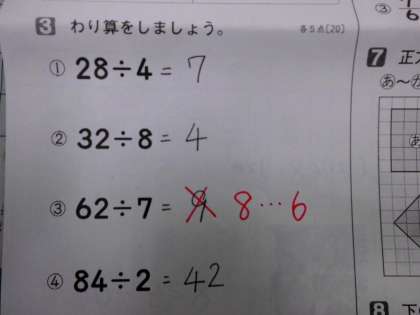 3 わり算をしましょう。 各5点[20]
① 28÷4 = 7
② 32÷8 = 4
③ 62÷7 = 9 8…6
④ 84÷2 = 42
③
6
7 正方
あ〜か
あ
8 下